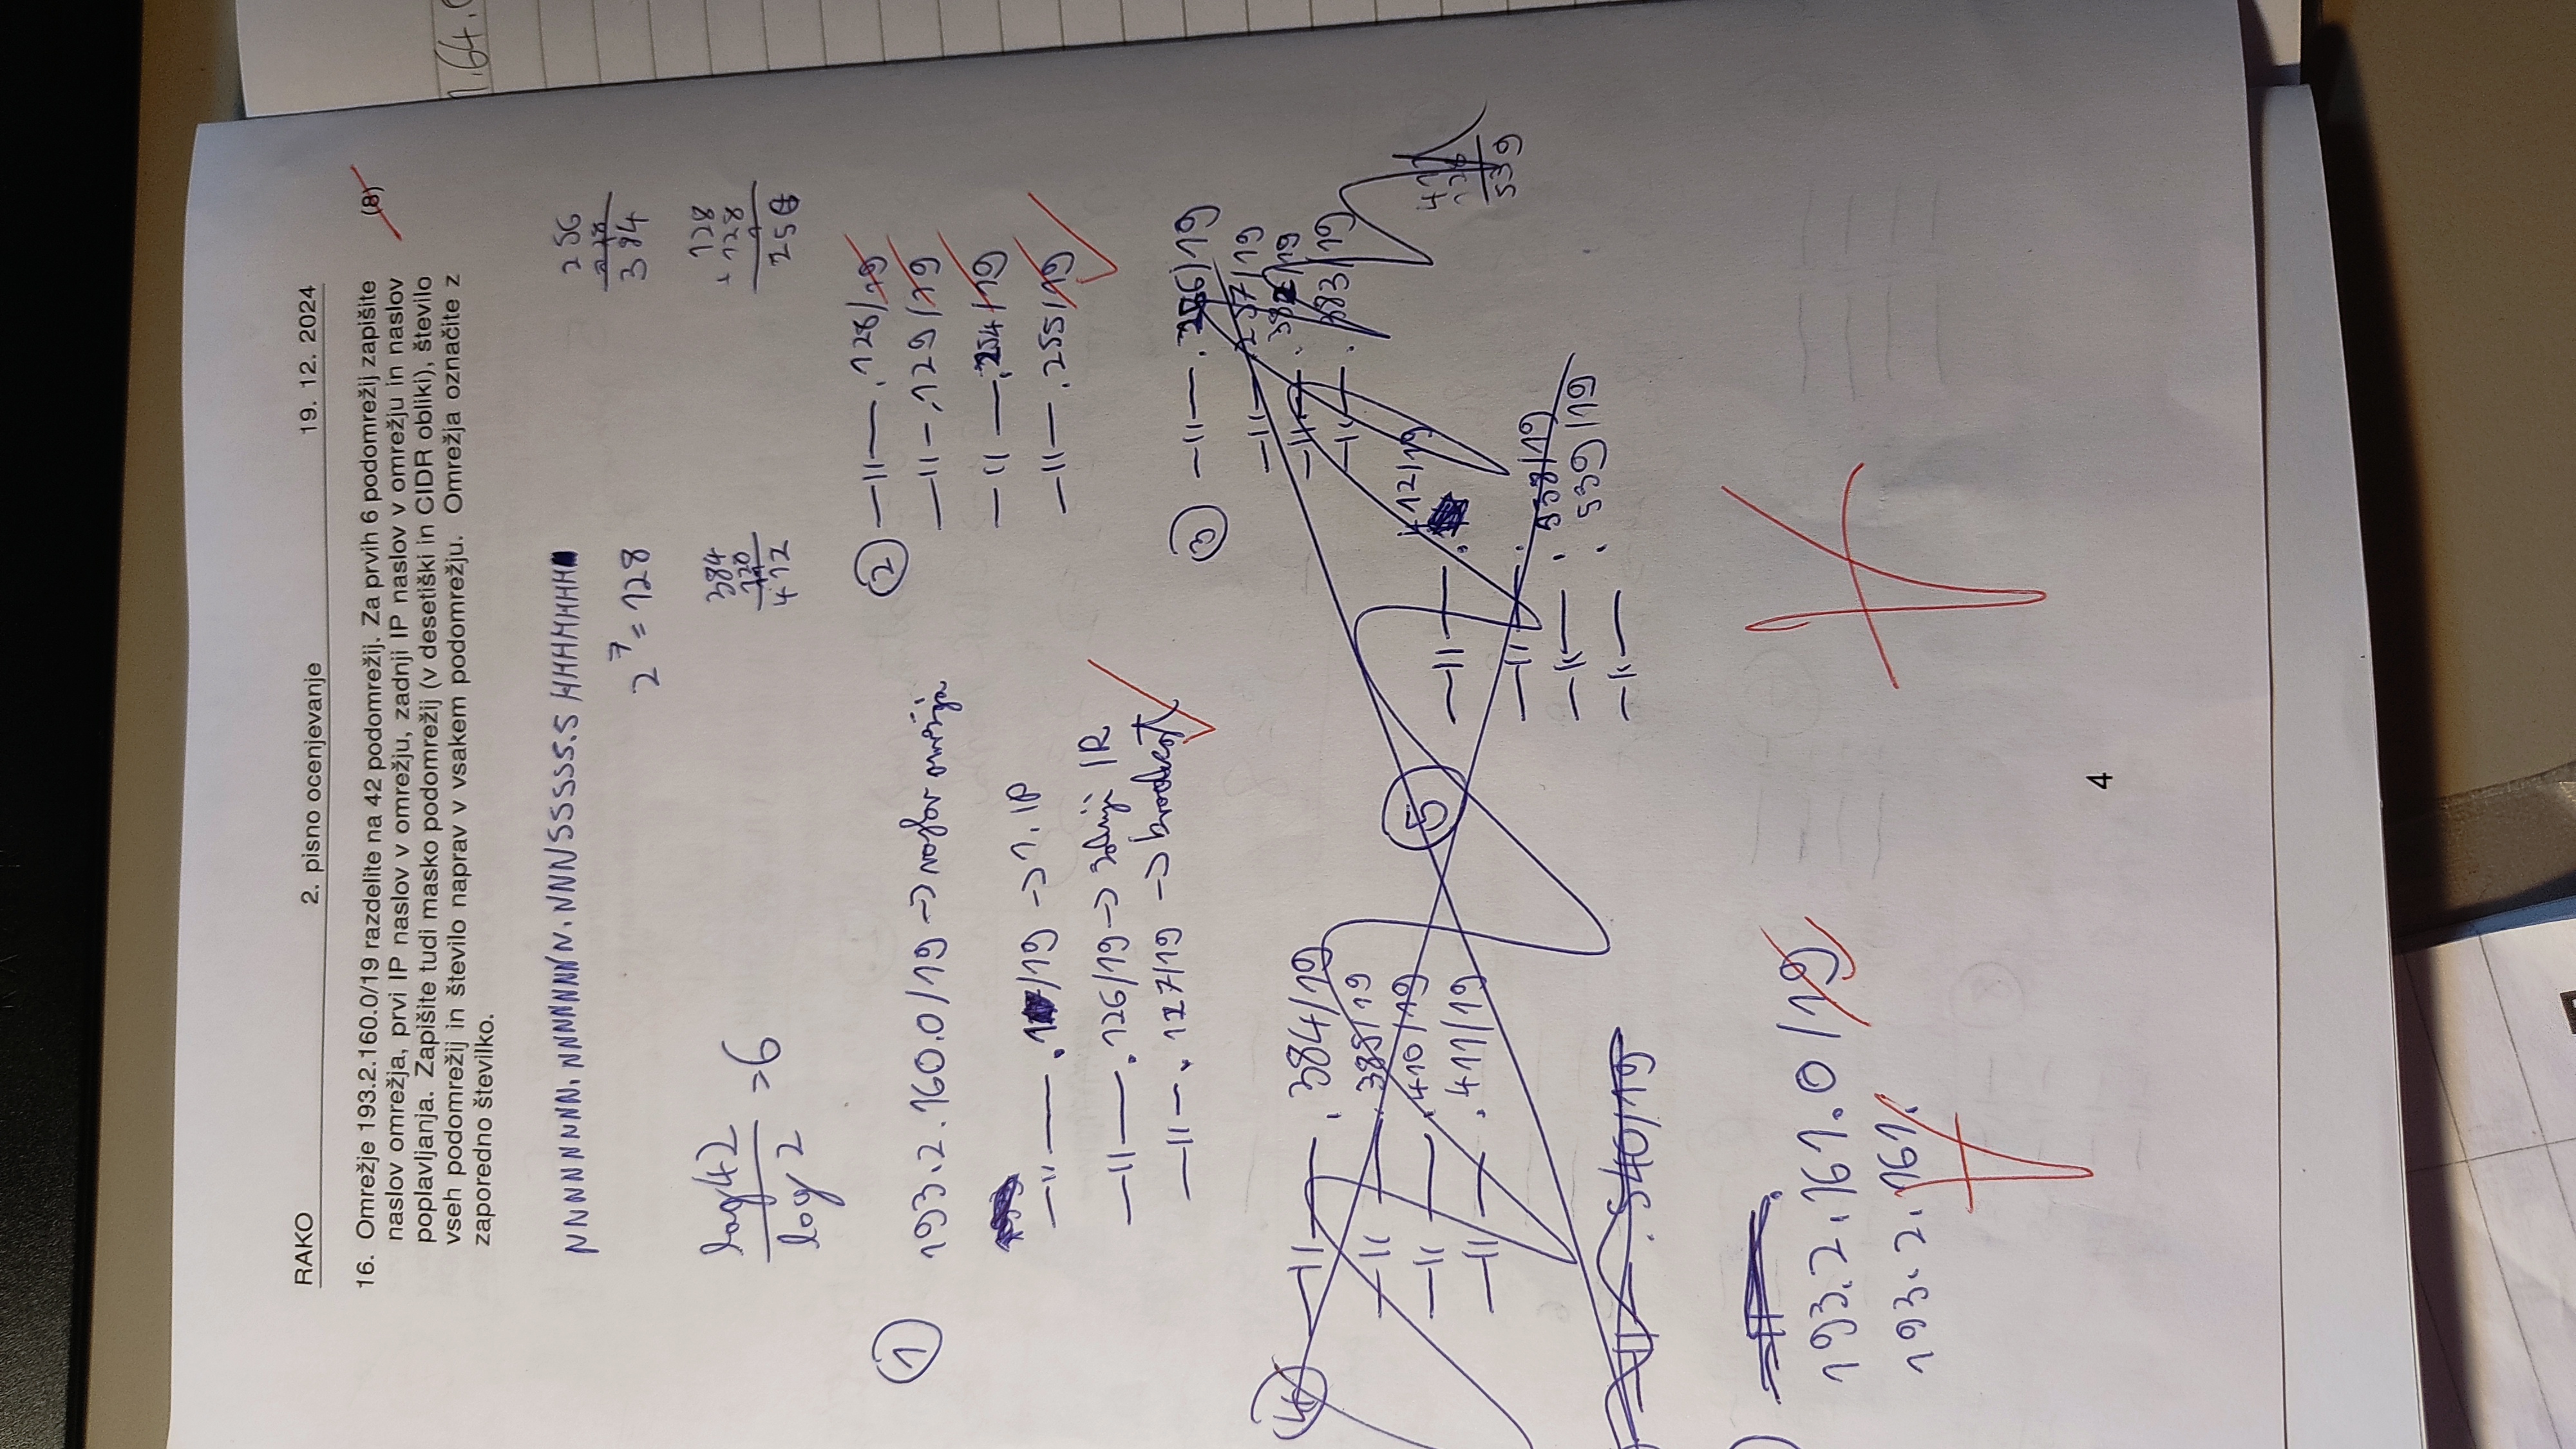 RAKO 2. pisno ocenjevanje 19. 12. 2024
16. Omrežje 193.2.160.0/19 razdelite na 42 podomrežij. Za prvih 6 podomrežij zapišite (8)
naslov omrežja, prvi IP naslov v omrežju, zadnji IP naslov v omrežju in naslov
poplavljanja. Zapišite tudi masko podomrežij (v desetiški in CIDR obliki), število
vseh podomrežij in število naprav v vsakem podomrežju. Omrežja označite z
zaporedno številko.
1.64.
NNNNNNNN. NNNNNNNN. NNNSSSSS.S HHHHHHH
2^7 = 128
256
128
384
log 42
log 2
=6
384
128
412
128
+ 128
256
1
193.2.160.0/19 -> naslov omrežja
—||— .1/19 -> 1. IP
—||— .126/19 -> zadnji IP
—||— .127/19 -> broadcast
2 —||— .128/19
—||— .129/19
—||— .254/19
—||— .255/19
3 —||— .256/19
—||— .257/19
—||— .382/19
—||— .383/19
4 —||— .384/19
—||— .385/19
—||— .410/19
—||— .411/19
5 —||— .412/19
—||— .
—||— .538/19
—||— .539/19
539
—||— .540/19
193.2.161.0/19
193.2.161.
4